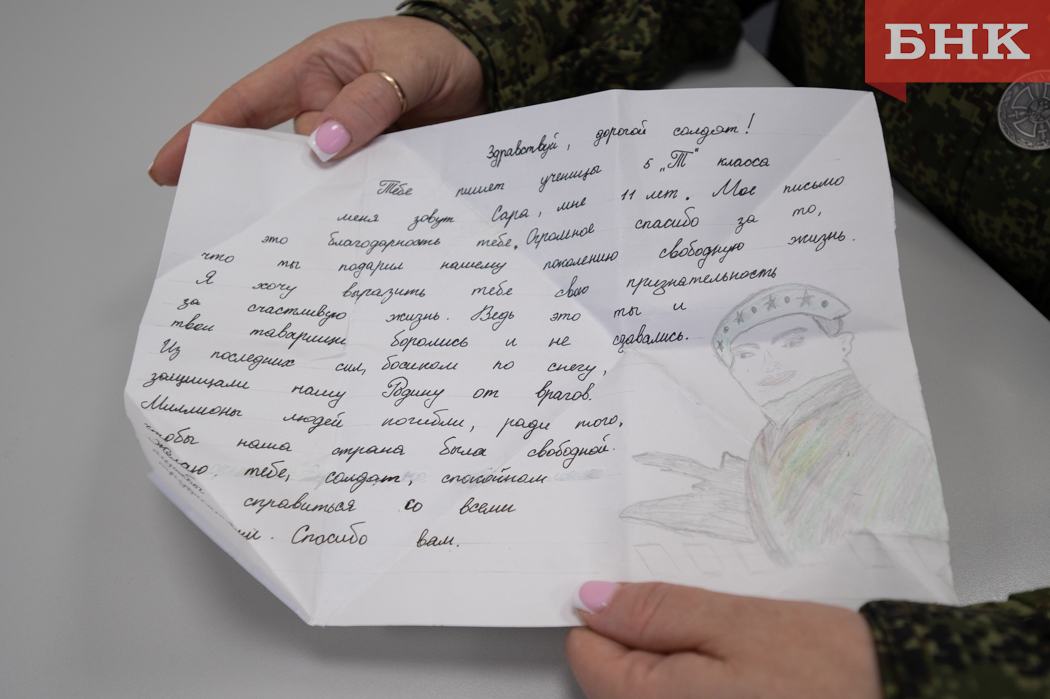 БНК
Здравствуй, дорогой солдат!
Тебе пишет ученица 5 „Т" класса
меня зовут Сара, мне 11 лет. Мое письмо
это благодарность тебе. Огромное спасибо за то,
что ты подарил нашему поколению свободную жизнь.
Я хочу выразить тебе свою признательность
за счастливую жизнь. Ведь это ты и
твои таварищи боролись и не сдавались.
Из последних сил, босиком по снегу,
защищали нашу Родину от врагов.
Миллионы людей погибли, ради того,
чтобы наша страна была свободной.
Желаю тебе, солдат, спокойном
справиться со всеми
Спасибо вам.